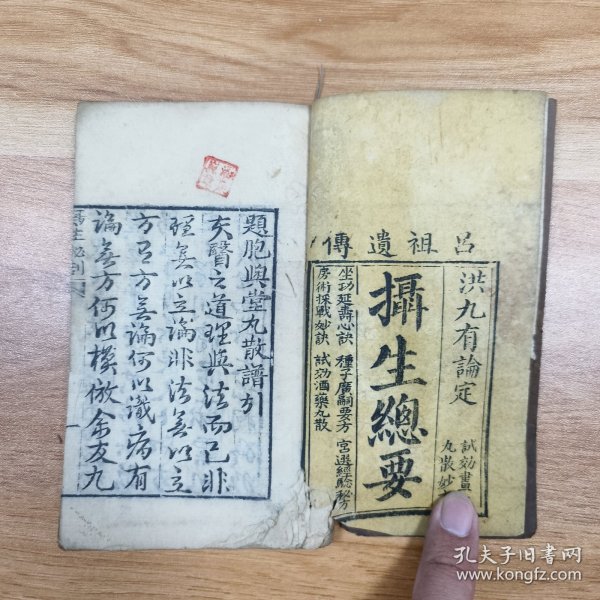 呂祖遺傳
洪九有論定
試効畫
丸散妙
攝生總要
坐功延壽心訣 種子廣嗣要方 宮邃經驗秘方
房術採戰妙訣 試効酒藥丸散
題胞與堂丸散譜引
夫醫之道理與法而已非
理無以立論非法無以立
方百方無論何以識病有
論無方何以模倣余友九
孔夫子旧书网
www.kongfz.com